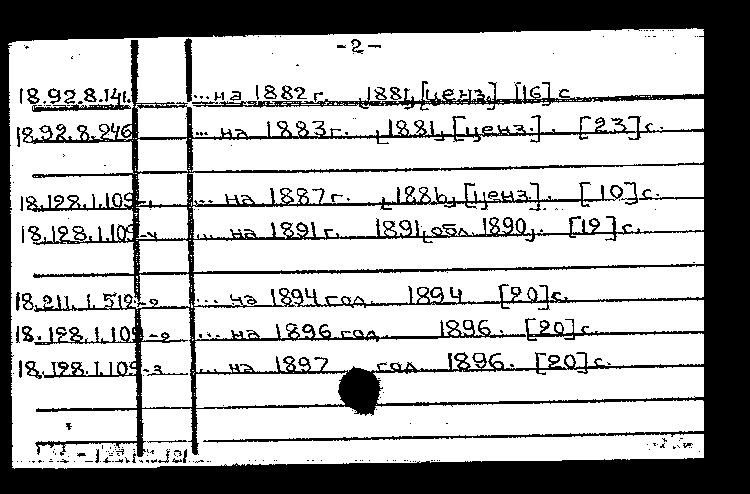 -2-
18.92.8.141. ...на 1882 г. [1881, [ценз.] [16] с.
18.92.8.246 ... на 1883 г. [1881, [ценз.]. [23] с.
18.128.1.109-1 ... на 1887 г. [1886, [ценз.]. [10] с.
18.128.1.109-4 ... на 1891 г. 1891 [обл. 1890]. [12] с.
18.211.1.512-2 ... на 1894 год. 1894 [20] с.
18.128.1.109-2 ... на 1896 год 1896. [20] с.
18.128.1.109-3 ... на 1897 год 1896. [20] с.